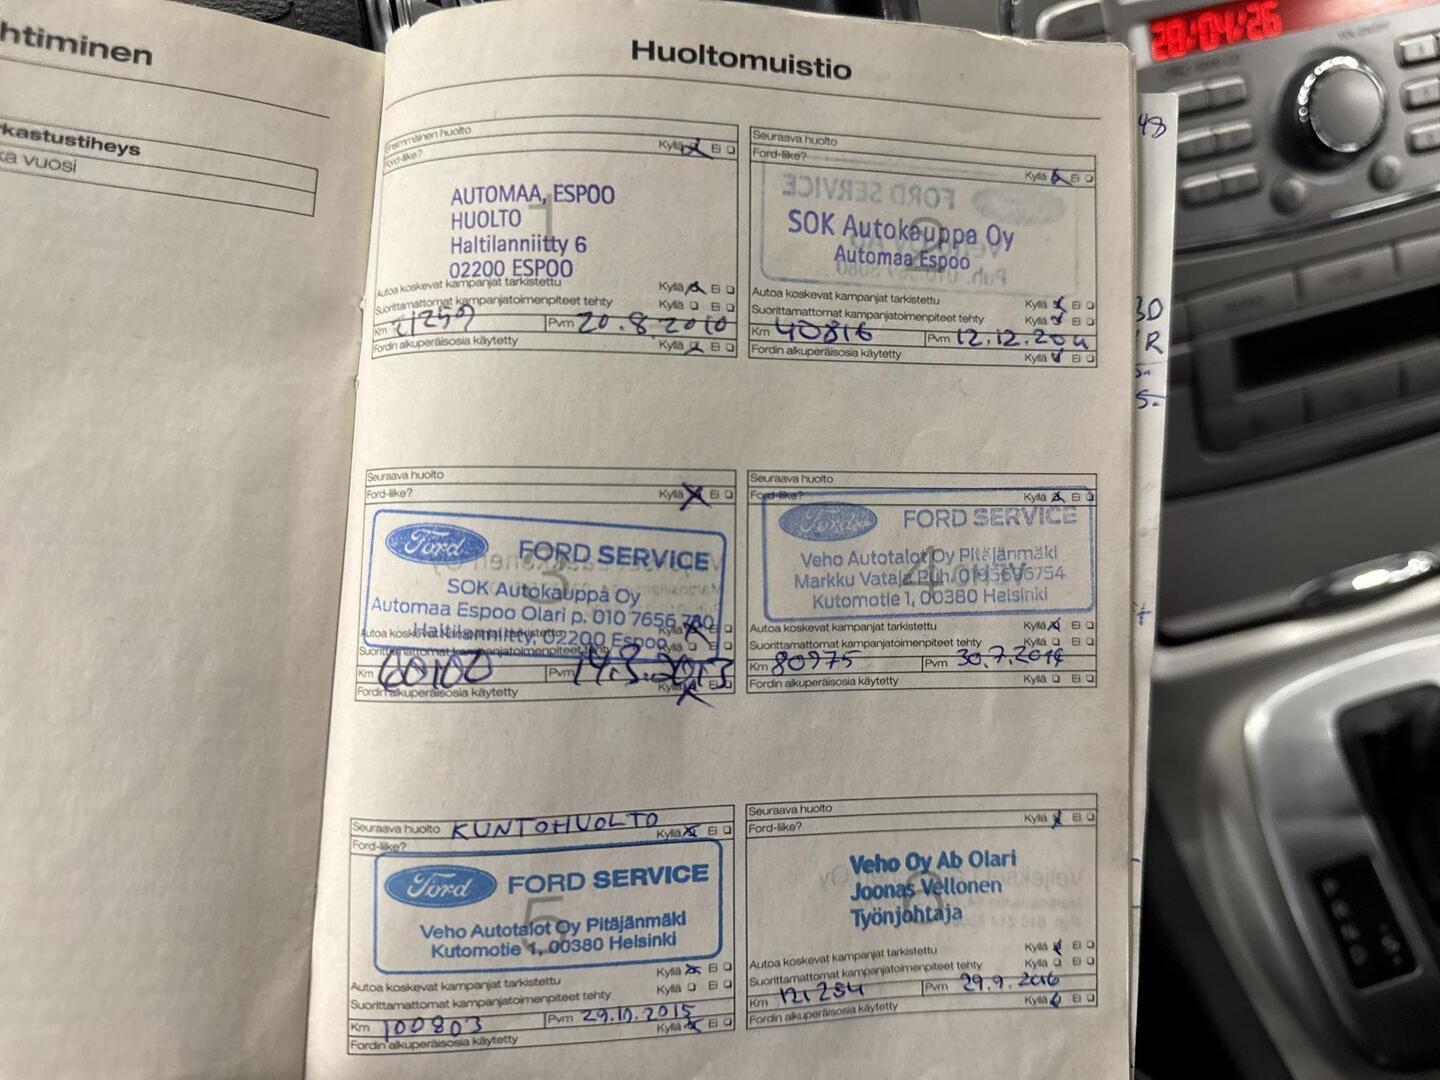 htiminen
kastustiheys
ka vuosi
Huoltomuistio
Ensimmäinen huolto
Ford-liike? Kyllä Ei
1
AUTOMAA, ESPOO
HUOLTO
Haltilanniitty 6
02200 ESPOO
Autoa koskevat kampanjat tarkistettu Kyllä Ei
Suorittamattomat kampanjatoimenpiteet tehty Kyllä Ei
Km 21259 Pvm 20.8.2010
Fordin alkuperäisosia käytetty Kyllä Ei
Seuraava huolto
Ford-liike? Kyllä Ei
FORD SERVICE
2
SOK Autokauppa Oy
Automaa Espoo
Autoa koskevat kampanjat tarkistettu Kyllä Ei
Suorittamattomat kampanjatoimenpiteet tehty Kyllä Ei
Km 40816 Pvm 12.12.2011
Fordin alkuperäisosia käytetty Kyllä Ei
Seuraava huolto
Ford-liike? Kyllä Ei
3
Ford FORD SERVICE
SOK Autokauppa Oy
Automaa Espoo Olari p. 010 7656 780
Haltilanniitty, 02200 Espoo
Autoa koskevat kampanjat tarkistettu Kyllä Ei
Suorittamattomat kampanjatoimenpiteet tehty Kyllä Ei
Km 60100 Pvm 14.3.2013
Fordin alkuperäisosia käytetty Kyllä Ei
Seuraava huolto
Ford-liike? Kyllä Ei
4
Ford FORD SERVICE
Veho Autotalot Oy Pitäjänmäki
Markku Vataja Puh.
Kutomotie 1, 00380 Helsinki
Autoa koskevat kampanjat tarkistettu Kyllä Ei
Suorittamattomat kampanjatoimenpiteet tehty Kyllä Ei
Km 80975 Pvm 30.7.2014
Fordin alkuperäisosia käytetty Kyllä Ei
Seuraava huolto KUNTOHUOLTO
Ford-liike? Kyllä Ei
5
Ford FORD SERVICE
Veho Autotalot Oy Pitäjänmäki
Kutomotie 1, 00380 Helsinki
Autoa koskevat kampanjat tarkistettu Kyllä Ei
Suorittamattomat kampanjatoimenpiteet tehty Kyllä Ei
Km 100803 Pvm 29.10.2015
Fordin alkuperäisosia käytetty Kyllä Ei
Seuraava huolto
Ford-liike? Kyllä Ei
6
Veho Oy Ab Olari
Joonas Vellonen
Työnjohtaja
Autoa koskevat kampanjat tarkistettu Kyllä Ei
Suorittamattomat kampanjatoimenpiteet tehty Kyllä Ei
Km 121254 Pvm 29.9.2016
Fordin alkuperäisosia käytetty Kyllä Ei
28/04/26
48
3D
R
5.-